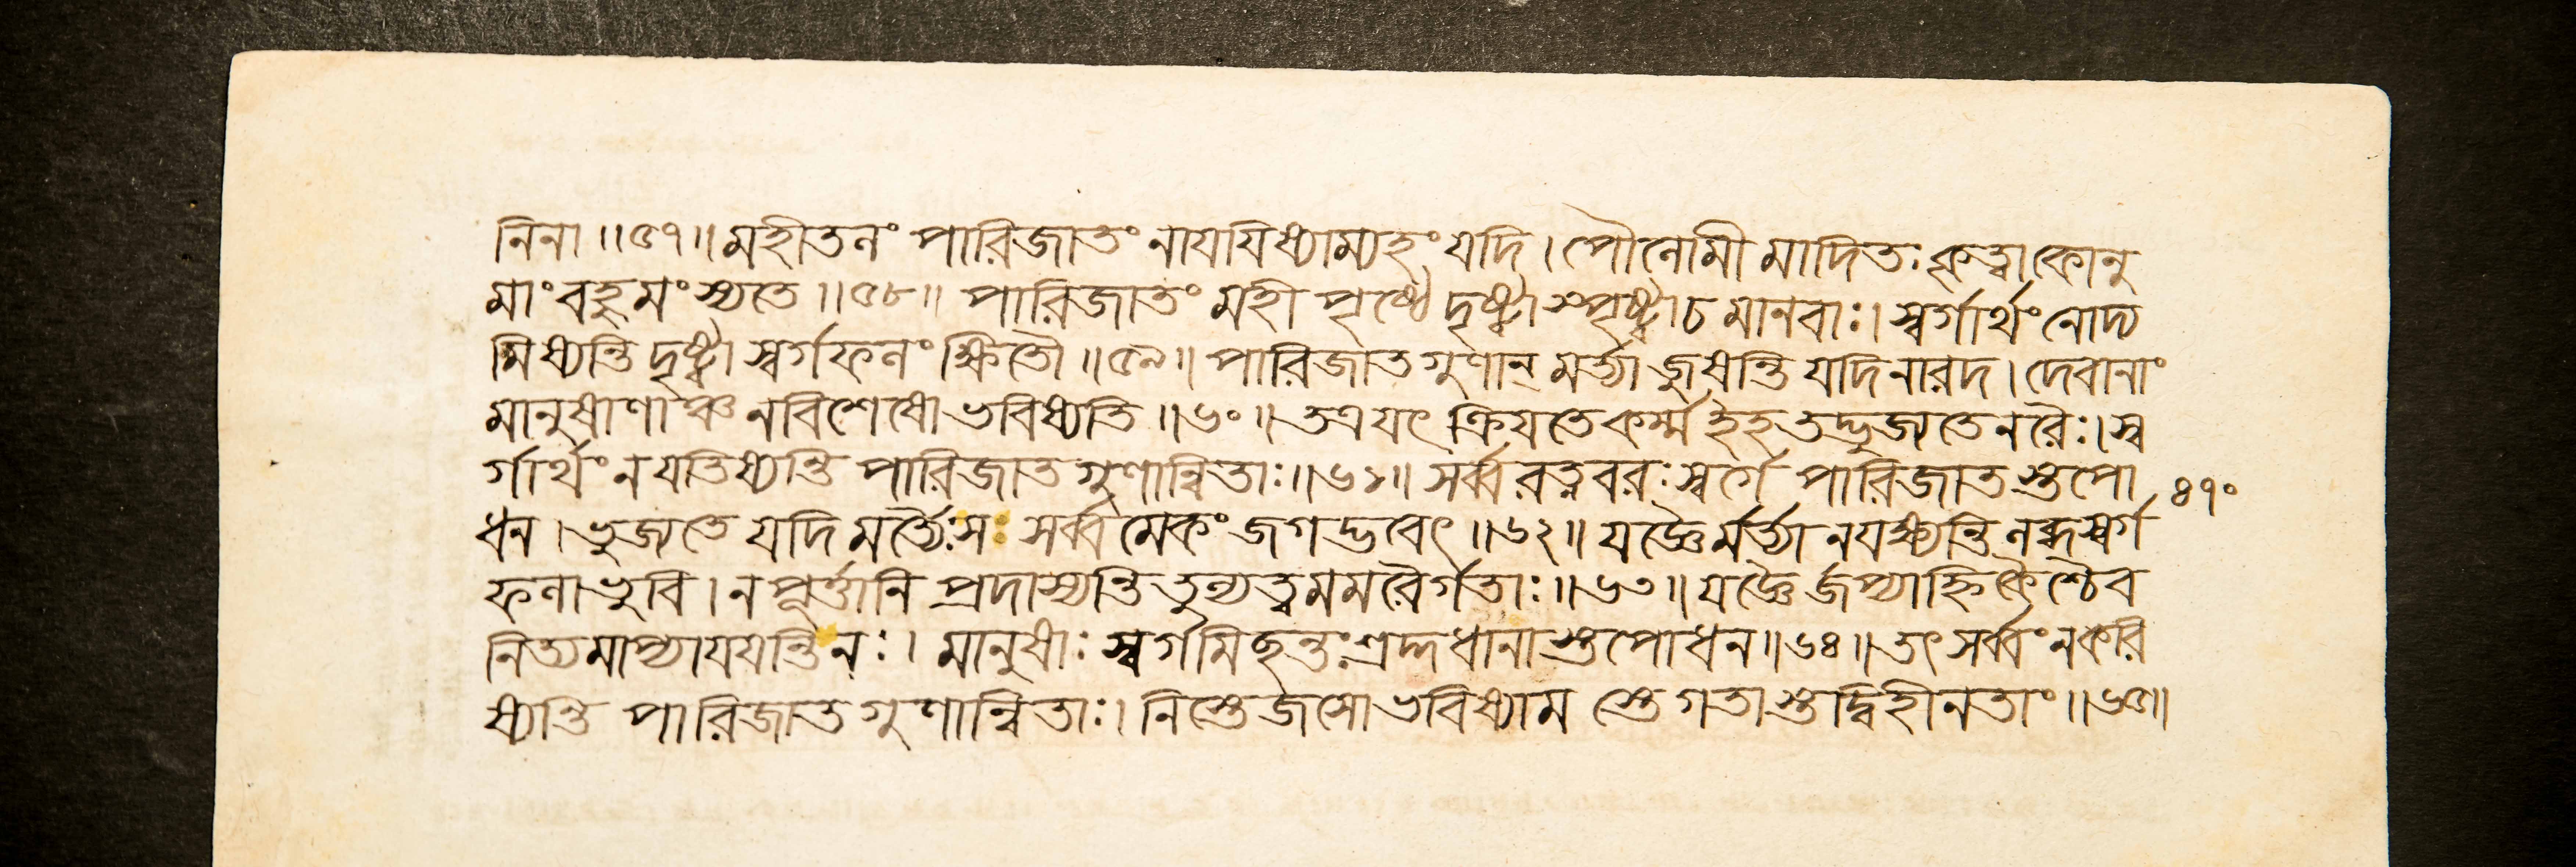 নিনা ॥৫৭॥ মহীতলং পারিজাতং নাযযিষ্যাম্যহং যদি । পৌলোমী মাদিতঃ কৃত্বা কোনু
মাং বহু মংস্যতে ॥৫৮॥ পারিজাতং মহী পৃষ্ঠে দৃষ্ট্বা স্পৃষ্ট্বা চ মানবাঃ । স্বর্গার্থং নোদ্য
মিষ্যন্তি দৃষ্ট্বা স্বর্গফলং ক্ষিতৌ ॥৫৯॥ পারিজাত গুণান্ মর্ত্যা জুষন্তি যদি নারদ । দেবানাং
মানুষাণাঞ্চ ন বিশেষো ভবিষ্যতি ॥৬০॥ তত্র যৎ ক্রিযতে কর্ম্ম ইহ তদ্ভুজ্যতে নরৈঃ । স্ব
র্গার্থং ন যতিষ্যন্তি পারিজাত গুণান্বিতাঃ ॥৬১॥ সর্ব্ব রত্নবরঃ স্বর্গে পারিজাত স্তপো
ধন । ভুজ্যতে যদি মর্ত্যৈঃ সঃ সর্ব্ব মেকং জগদ্ভবেৎ ॥৬২॥ যজ্ঞৈর্মর্ত্যা ন যক্ষ্যন্তি লব্ধ স্বর্গ
ফলা ভুবি । ন পূর্ত্তানি প্রদাস্যন্তি তুল্যত্ব মমরৈর্গতাঃ ॥৬৩॥ যজ্ঞৈ র্জপ্যাহ্নিকৈ শ্চৈব
নিত্যমাপ্যাযযন্তি নঃ । মানুষাঃ স্বর্গমিছন্তঃ শ্রদ্দধানা স্তপোধন ॥৬৪॥ তৎ সর্ব্বং ন করি
ষ্যন্তি পারিজাত গুণান্বিতাঃ । নিস্তেজসো ভবিষ্যাম স্তে গতা স্তদ্বিহীনতাং ॥৬৫॥
৪৭০